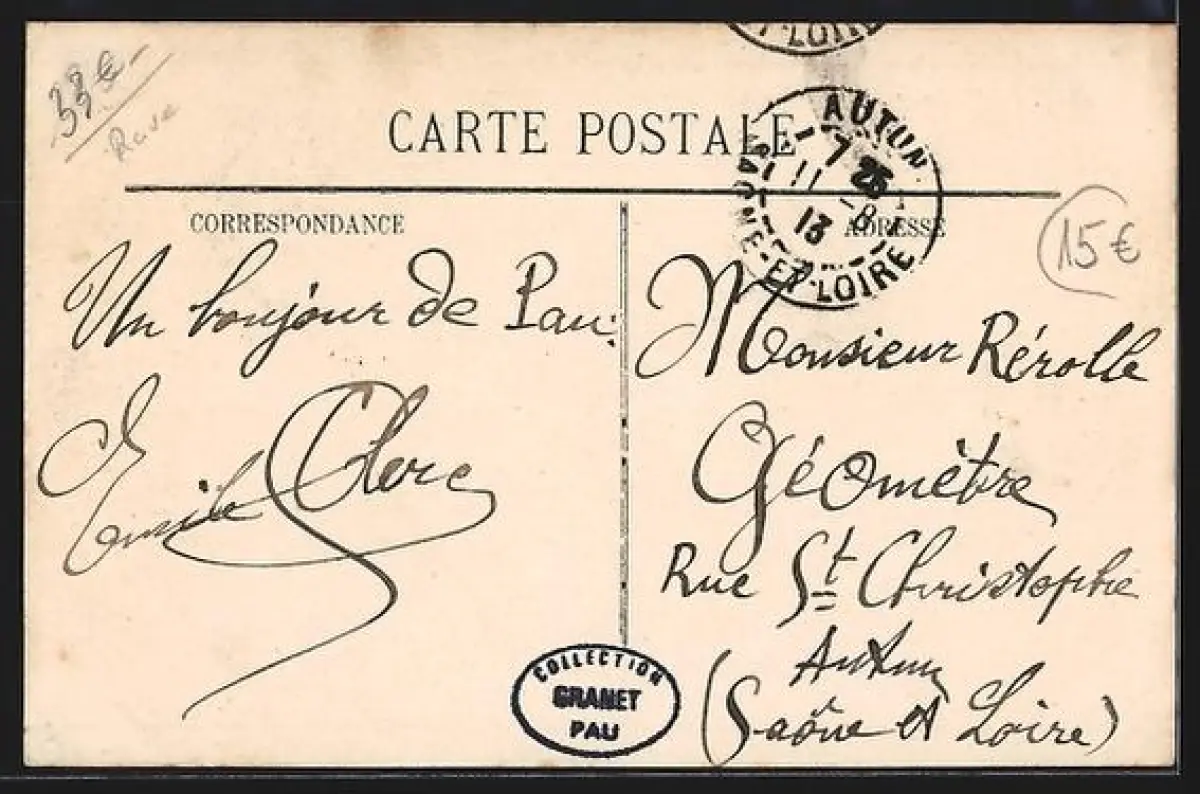 T-LOIRE
33€-
Rare
CARTE POSTALE
AUTUN
7 25
11 -8
13
SAONE-ET-LOIRE
CORRESPONDANCE
ADRESSE
15€
Un bonjour de Pau.
Emile Clerc
Monsieur Rérolle
Géomètre
Rue St Christophe
Autun
(Saône et Loire)
COLLECTION
GRANET
PAU